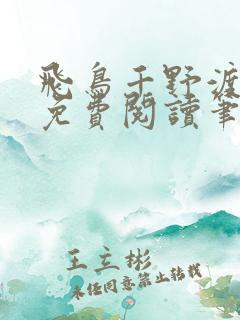 飛鳥于野渡
免費閱讀筆
王立彬
未經同意禁止轉載